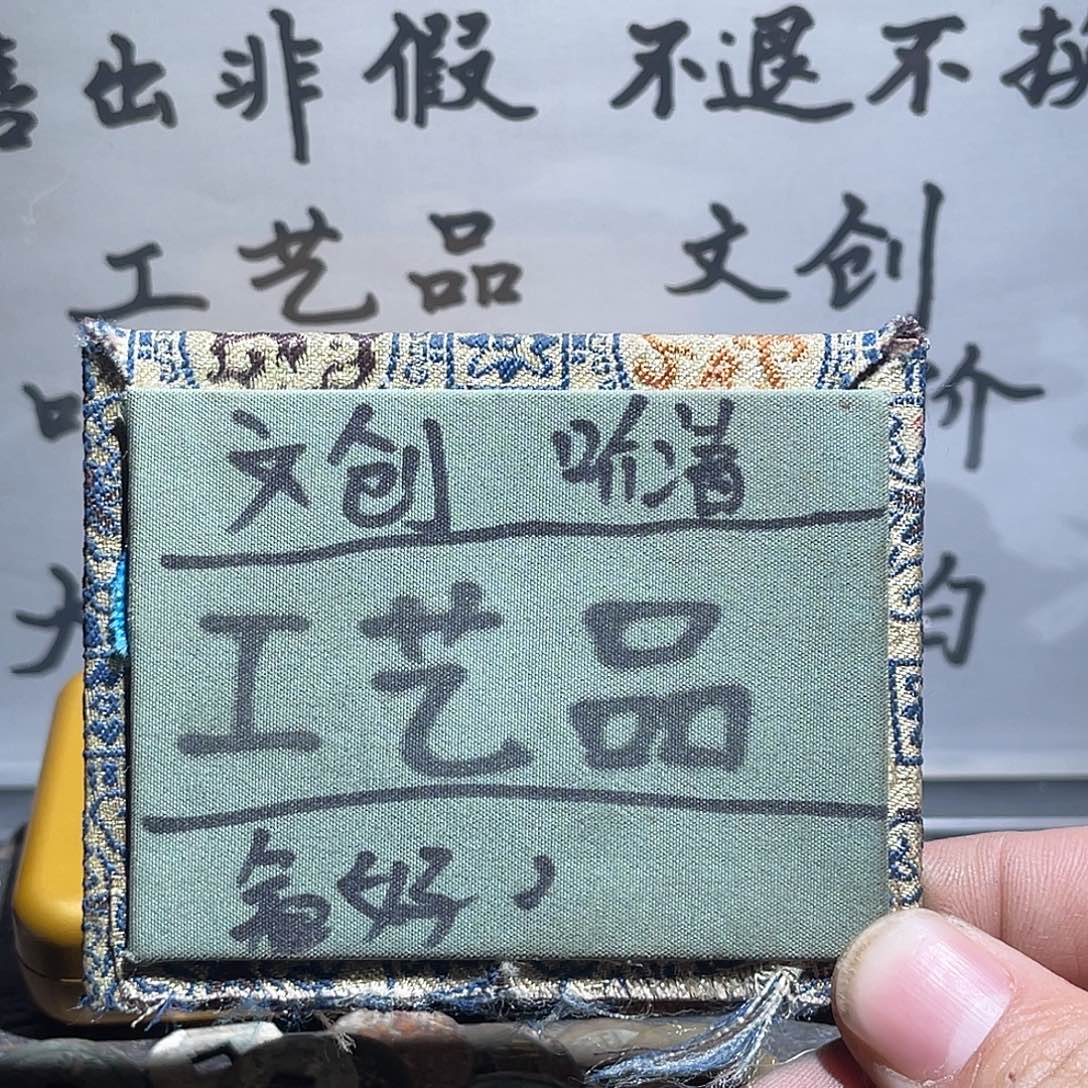 出非假 不退不
工艺品 文创
价
白
文创 听清
工艺品
看好，